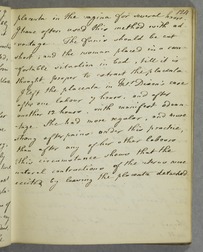 placenta in the vagina for several hours
I have often used this method with ad-
vantage. The funis should be cut
short, and the woman placed in a com-
fortable situation in bed, till it is
thought proper to extract the placenta
I left the placenta in Mrs Deans's case
after one labour 7 hours, and after
another 12 hours, with manifest advan-
tage. She had more regular, and more
strong after pains under this practice,
than after any of her other labours
this circumstance shows that the
natural contractions of the uterus were
excited by leaving the placenta detached